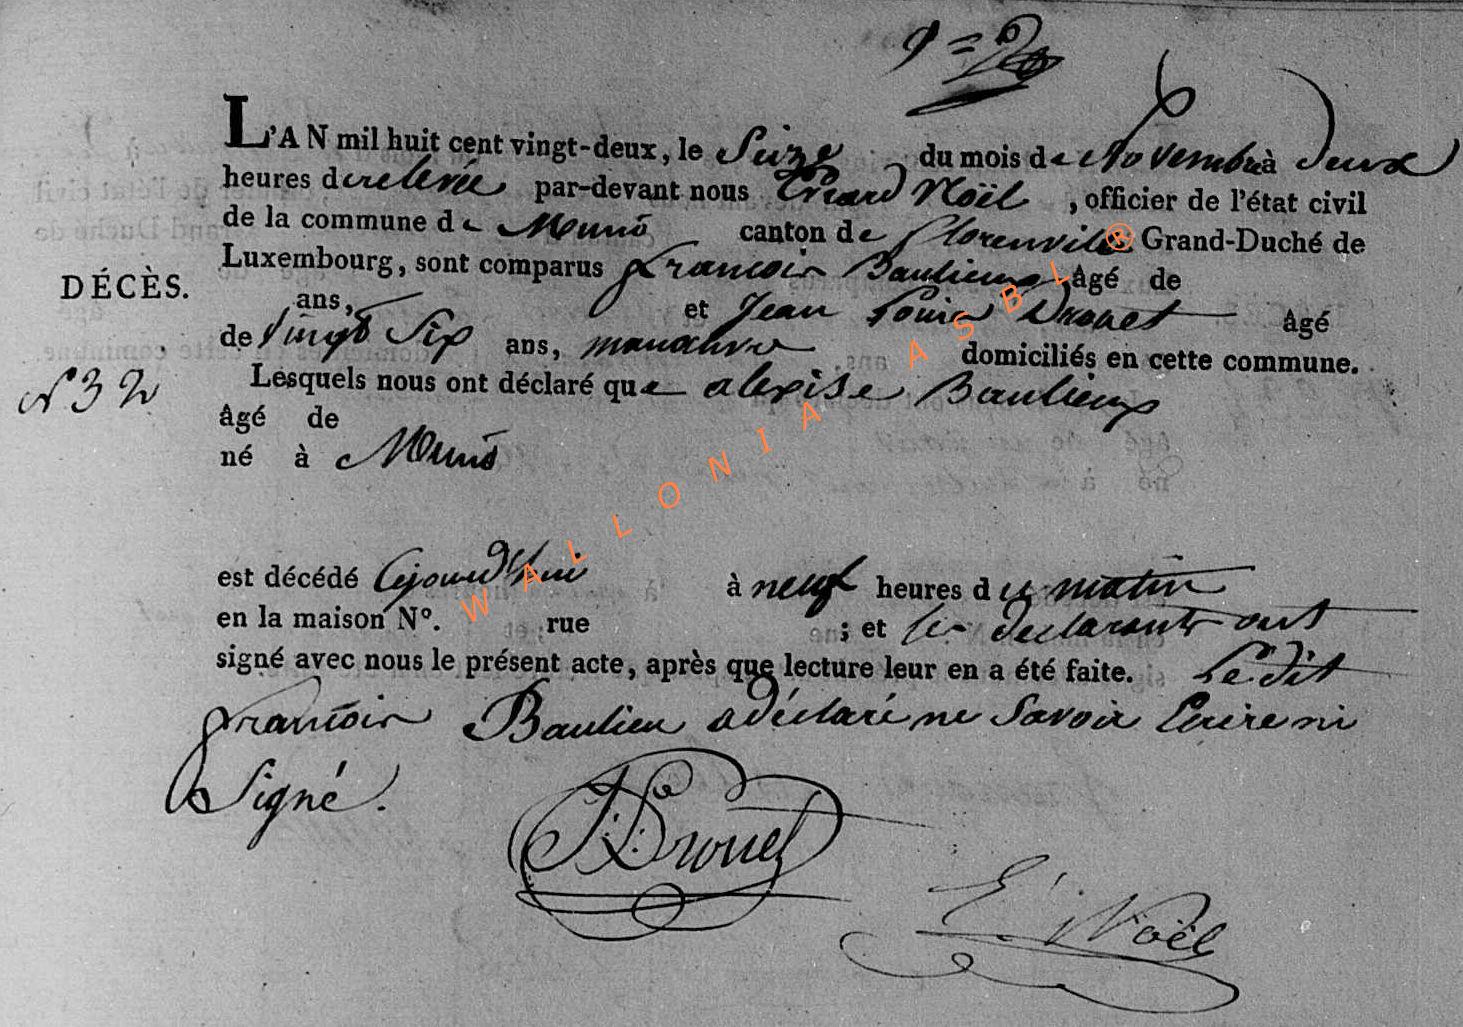 L'AN mil huit cent vingt-deux, le Seize du mois de Novembre à deux
heures de relevée par-devant nous Erard Noël, officier de l'état civil
de la commune de Muno canton de florenville Grand-Duché de
Luxembourg, sont comparus francois Baulieux âgé de
ans, et Jean Louis Drouet âgé
de vingt Six ans, manoeuvre domiciliés en cette commune.
DÉCÈS.
N 32
Lesquels nous ont déclaré que alexise Baulieux
âgé de
né à Muno
est décédé Cejourd'hui à neuf heures du matin
en la maison N°. rue ; et les declarants ont
signé avec nous le présent acte, après que lecture leur en a été faite. Le dit
francois Baulieu a déclaré ne Savoir Ecrire ni
Signé.
Drouet
E Noël
WALLONIA ASBL ®